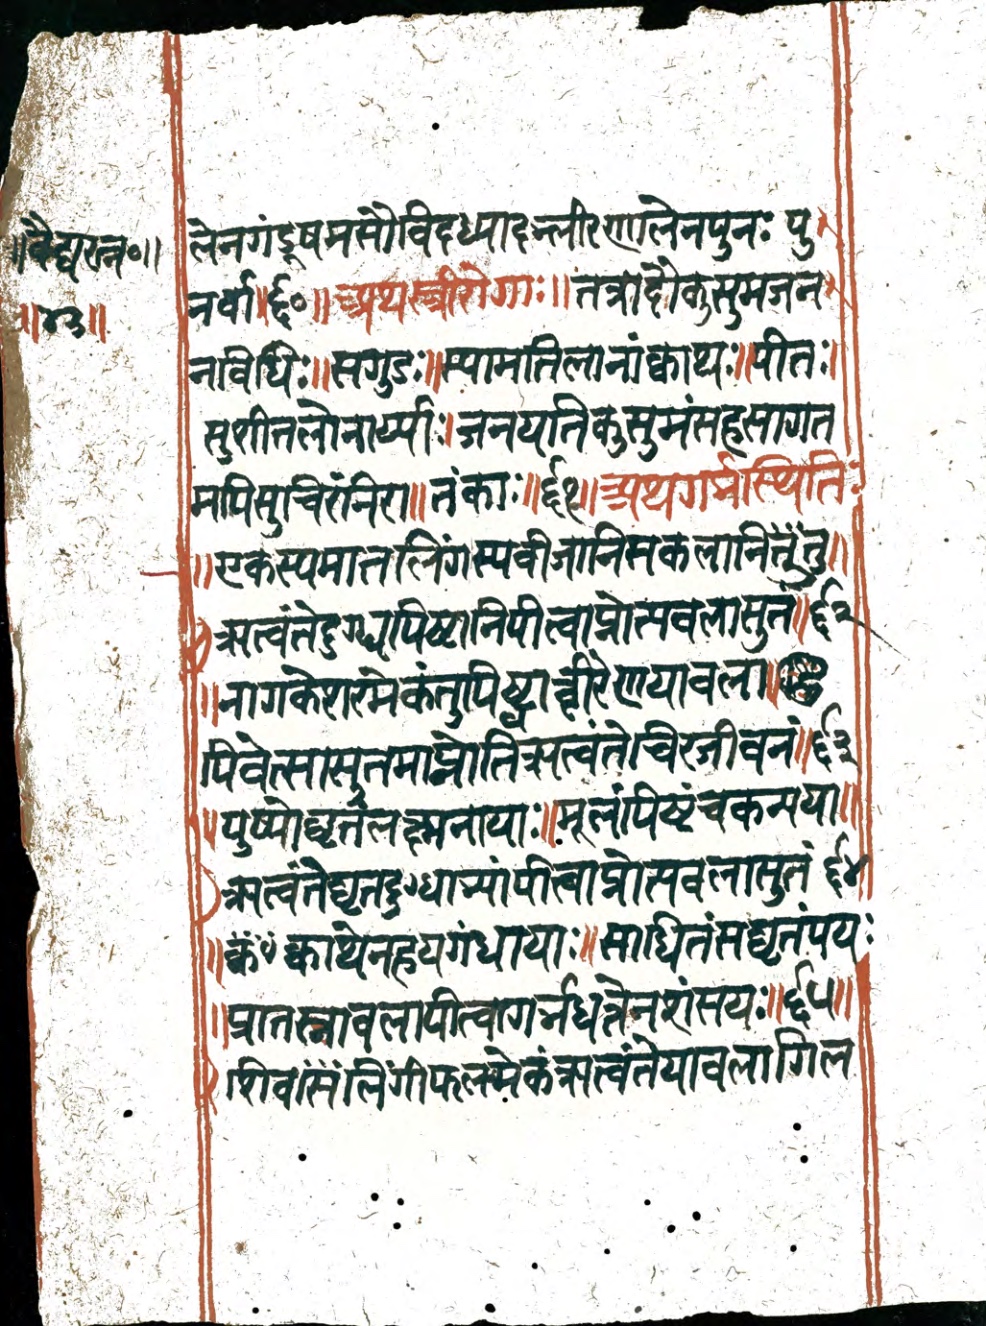 ॥वैद्यरत्न॰॥
॥४३॥
लेनगंडूषमसौविदध्यादन्लीरणालेनपुनः पु
नर्वा॥६०॥अथस्त्रीरोगाः॥तत्रादौकुसुमजन
नाविधिः॥सगुडः॥स्यामतिलानांक्वाथः॥पीतः।
सुशीतलोनार्य्याः।जनयतिकुसुमंसहसागत
मपिसुचिरंनिरा॥तंकाः॥६१॥अथगर्भस्थितिः
॥एकस्यमातलिंगस्यवीजानिसकलानितुंतु॥
ऋत्वंतेदुग्धपिष्टानिपीत्वाप्नोत्यवलासुतं॥६२
॥नागकेशरमेकंतुपिष्ट्वाक्षीरेणयावला॥
पिवेत्सासुतमाप्नोतिऋत्वंतेचिरजीवनं॥६३
॥पुष्पोद्घृतंलक्ष्मनायाः॥मूलंपिष्टंचकन्यया॥
ऋत्वंतेघृतदुग्धाभ्यांपीत्वाप्नोत्यवलासुतं ६४
॥क्वं॰क्वाथेनहयगंधायाः॥साधितंसघृतंपयः
॥प्रातस्नावलापीत्वागर्भंधत्तेनशंसयः॥६५॥
शिवांसंलिंगीफलमेकंऋत्वंतेयावलागिल